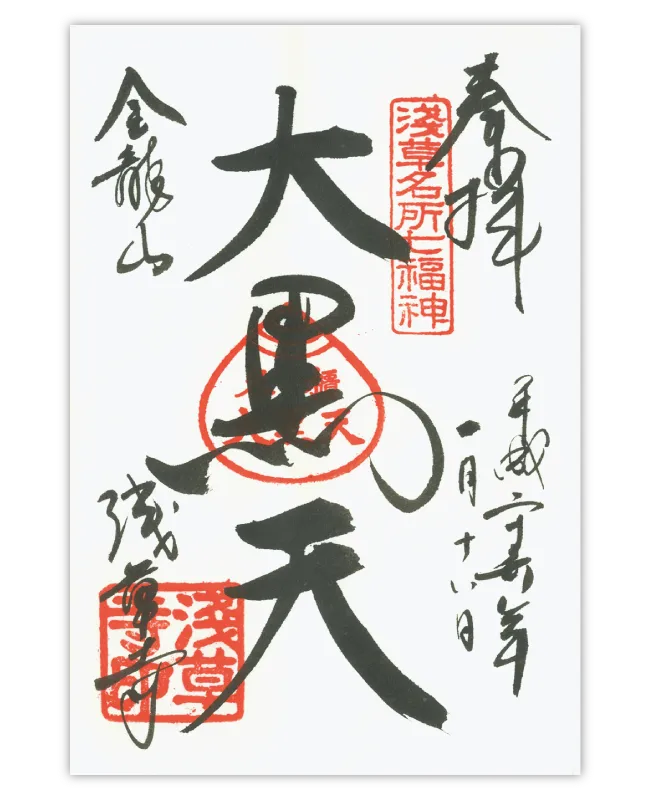 奉拝
平成 年
一月十八日
淺草名所七福神
大黒天
金龍山
浅草寺
淺草寺印